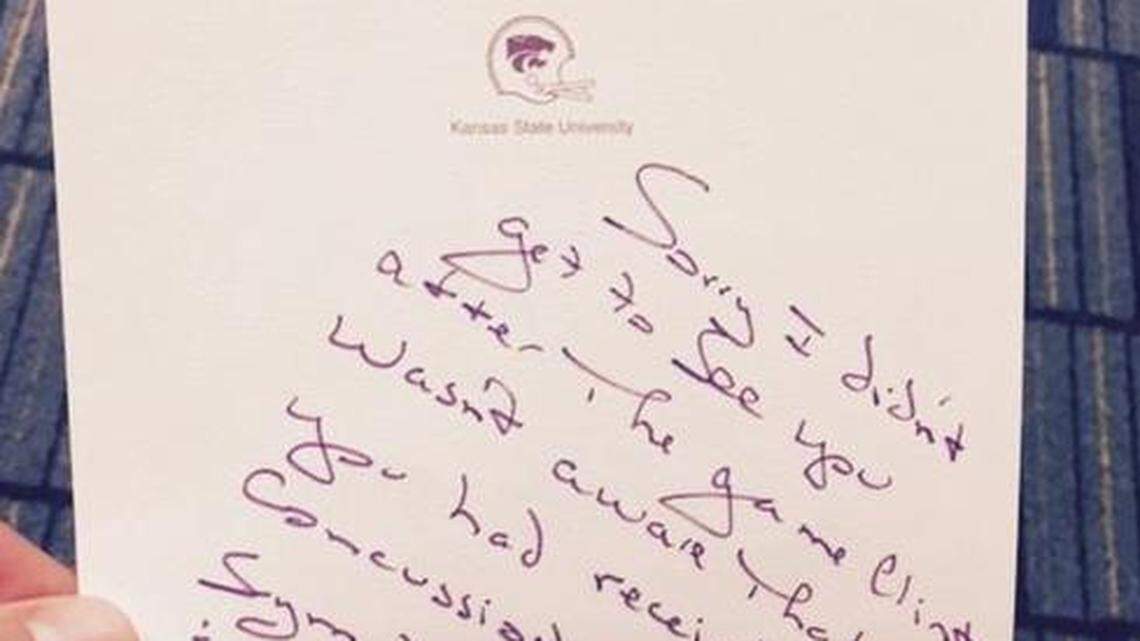 Kansas State University
Sorry I didn't
get to see you
after the game Clint
Wasn't aware that
you had recei
Concussion
Sym